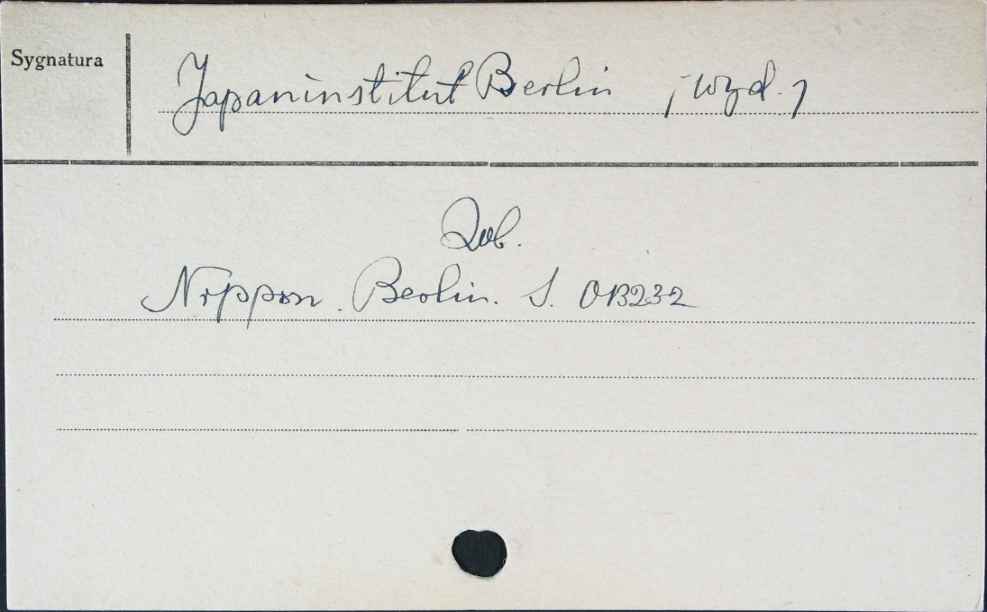 Sygnatura
Japaninstitut Berlin /wyd./
Zob.
Nippon. Berlin. S. OB232